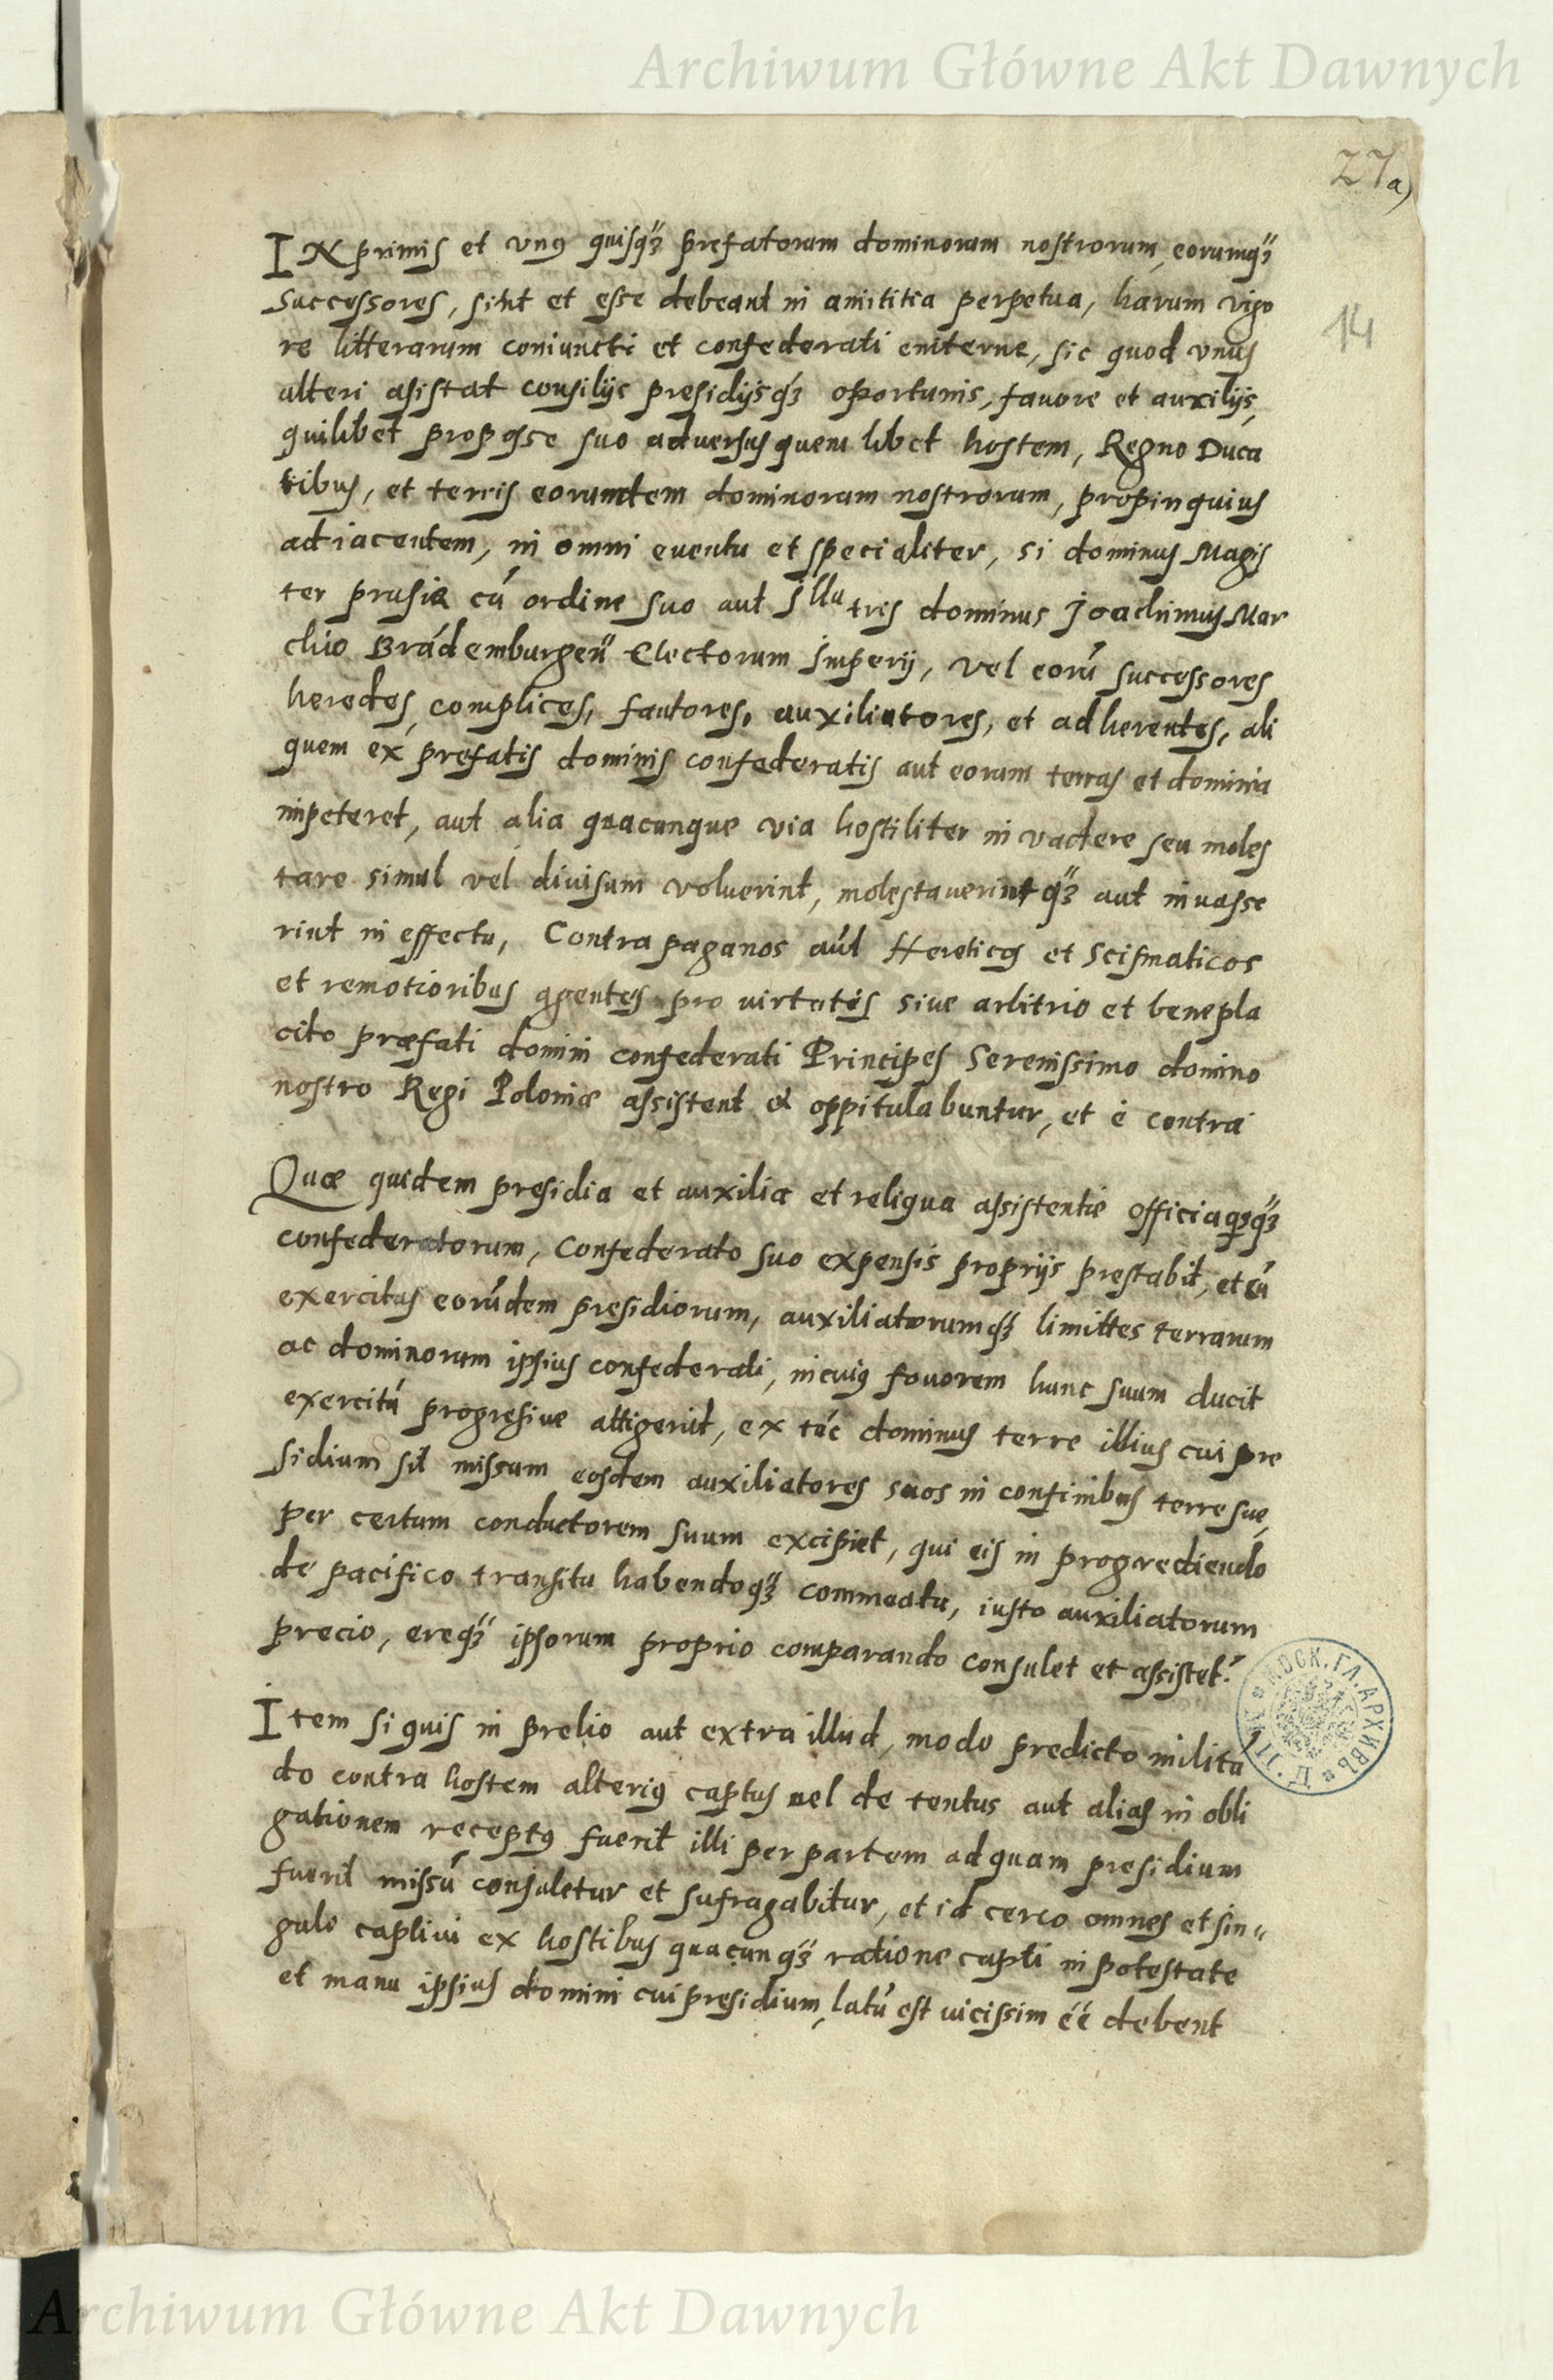 Archiwum Główne Akt Dawnych
27a)
14
INprimis et vnꝯ quisqꝫ prefatorum dominorum nostrorum, eorumqꝫ
Successores, sint et esse debeant in amititia perpetua, harum vigo
re litterarum coniuncti et confederati eniterne, sic quod vnus
alteri asistat consilijs presidijsqꝫ oportunis, fauore et auxilijs,
quilibet pro posse suo aduersus quem libet hostem, Regno Duca
tibus, et terris eorumdem dominorum nostrorum, propinquius
adiacentem, in omni euentu et specialiter, si dominus Magis
ter prusiæ cū ordine suo aut Illustris dominus Joachimus Mar
chio Brādemburgeñ Electorum Imperij, vel eorū successores
heredes, complices, fautores, auxiliatores, et adherentes, ali
quem ex prefatis dominis confederatis aut eorum terras et dominia
impeteret, aut alia quacunque via hostiliter in vadere seu moles
tare simul vel diuisum voluerint, molestauerintqꝫ aut inuasse
rint in effectu, Contra paganos aut Hereticos et Scismaticos
et remotioribus agentes pro virtutis siue arbitrio et benepla
cito præfati domini confederati Principes Serenissimo domino
nostro Regi Poloniæ assistent & oppitulabuntur, et è contra
Quæ quidem presidia et auxilia et reliqua assistentie officia qsqꝫ
confederatorum, Confederato suo expensis proprijs prestabit, et cū
exercitus eorūdem presidiorum, auxiliatorumqꝫ limittes terrarum
ac dominorum ipsius confederati, in cuiꝯ fouorem hunc suum ducit
exercitū progresiue attigerit, ex tūc dominus terre illius cui pre
sidium sit missum eosdem auxiliatores suos in confinibus terre sue,
per certum conductorem suum excipiet, qui eis in progrediendo
de pacifico transitu habendoqꝫ commeatu, iusto auxiliatorum
precio, ereqꝫ ipsorum proprio comparando consulet et assistet.
Item si quis in prelio aut extra illud, modo predicto militā
do contra hostem alteriꝯ captus uel de tentus aut alias in obli
gationem receptꝯ fuerit illi per partem ad quam presidium
fuerit missū consuletur et sufragabitur, et id cerco omnes et sin„
guli captiui ex hostibus quacunqꝫ ratione capti in potestate
et manu ipsius domini cui presidium, latū est vicissim éé debent
МОСК. ГЛ. АРХИВЪ
Archiwum Główne Akt Dawnych